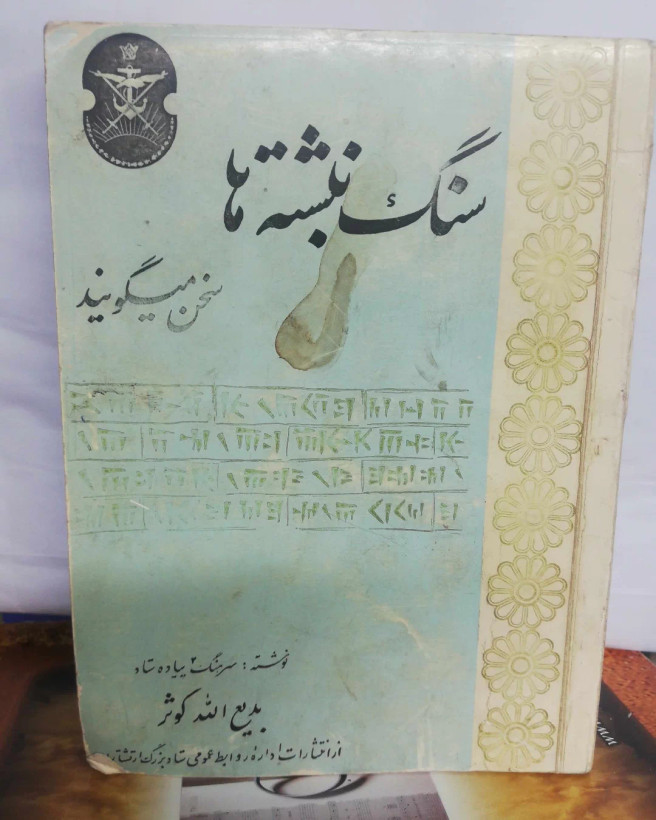 سنگ نبشته ها
سخن میگویند
نوشته: سرهنگ ۲ پیاده ستاد
بدیع الله کوثر
از انتشارات اداره روابط عمومی ستاد بزرگ ارتشتاران
www